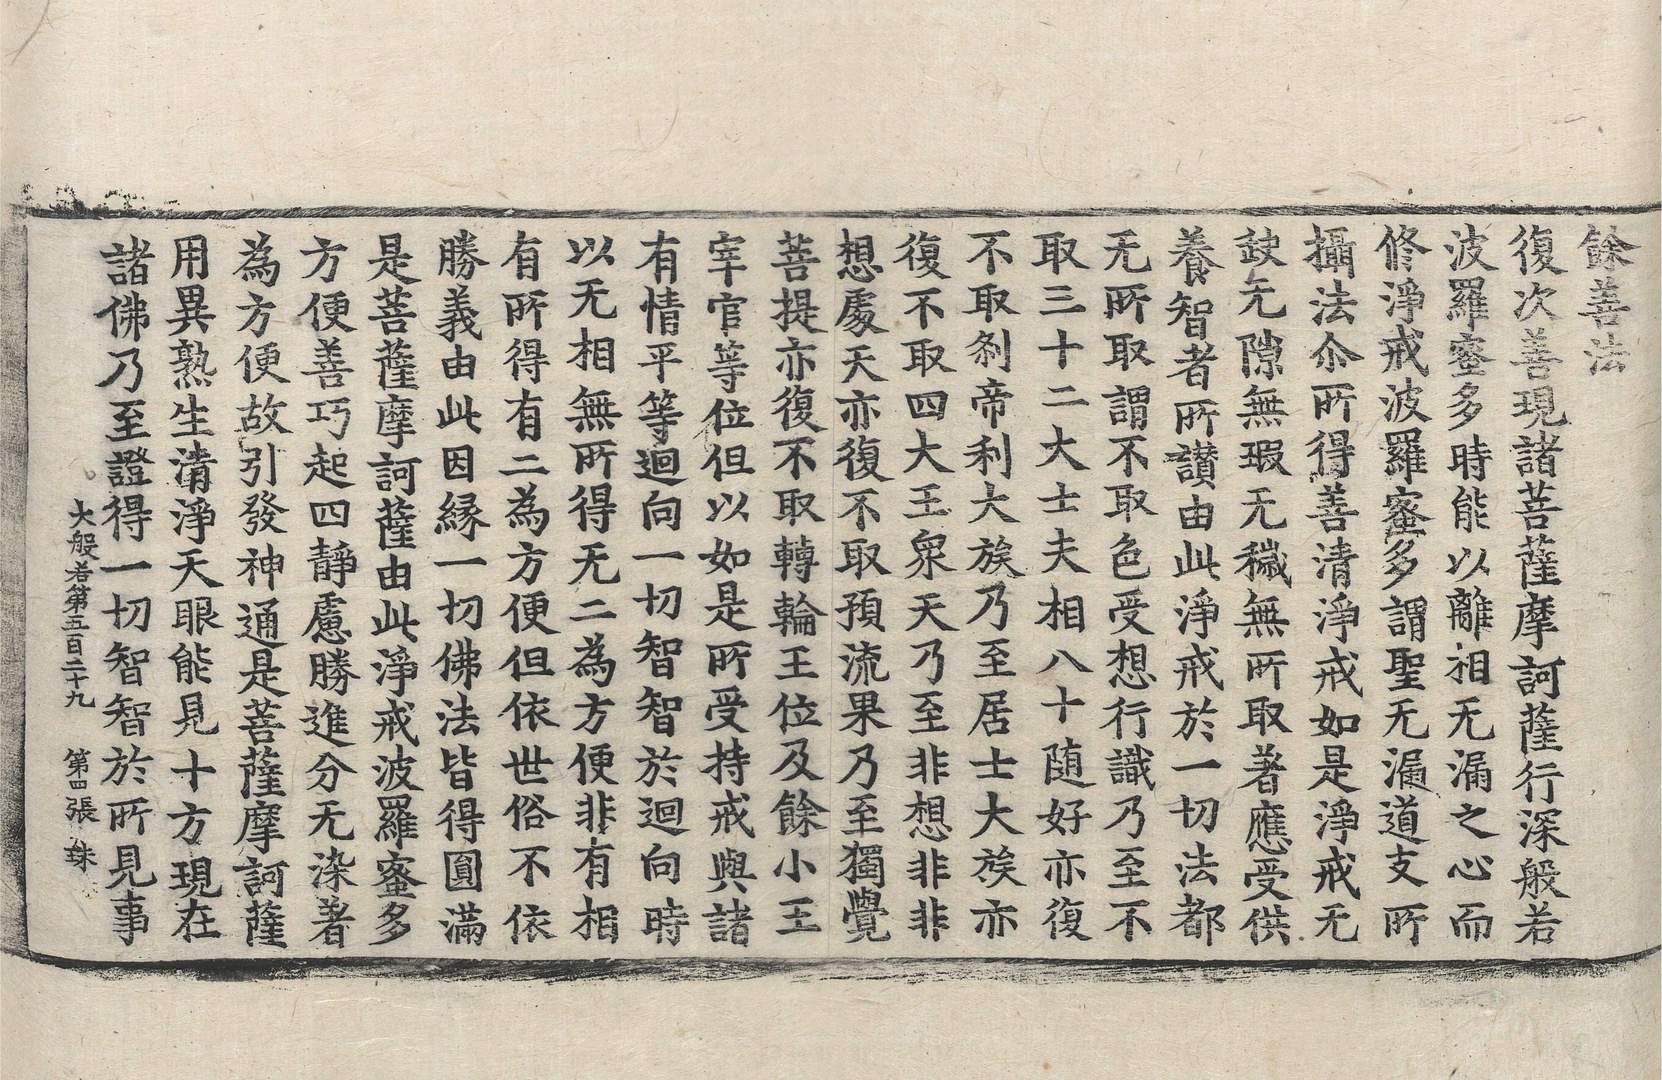 餘善法
復次善現諸菩薩摩訶薩行深般若
波羅蜜多時能以離相无漏之心而
修淨戒波羅蜜多謂聖无漏道支所
攝法尒所得善清淨戒如是淨戒无
缺无隙無瑕无穢無所取著應受供
養智者所讃由此淨戒於一切法都
无所取謂不取色受想行識乃至不
取三十二大士夫相八十随好亦復
不取剎帝利大族乃至居士大族亦
復不取四大王衆天乃至非想非非
想處天亦復不取預流果乃至獨覺
菩提亦復不取轉輪王位及餘小王
宰官等位但以如是所受持戒與諸
有情平等迴向一切智智於迴向時
以无相無所得无二為方便非有相
有所得有二為方便但依世俗不依
勝義由此因緣一切佛法皆得圓滿
是菩薩摩訶薩由此淨戒波羅蜜多
方便善巧起四靜慮勝進分无染著
為方便故引發神通是菩薩摩訶薩
用異熟生清淨天眼能見十方現在
諸佛乃至證得一切智智於所見事
大般若第五百二十九 第四張 珠